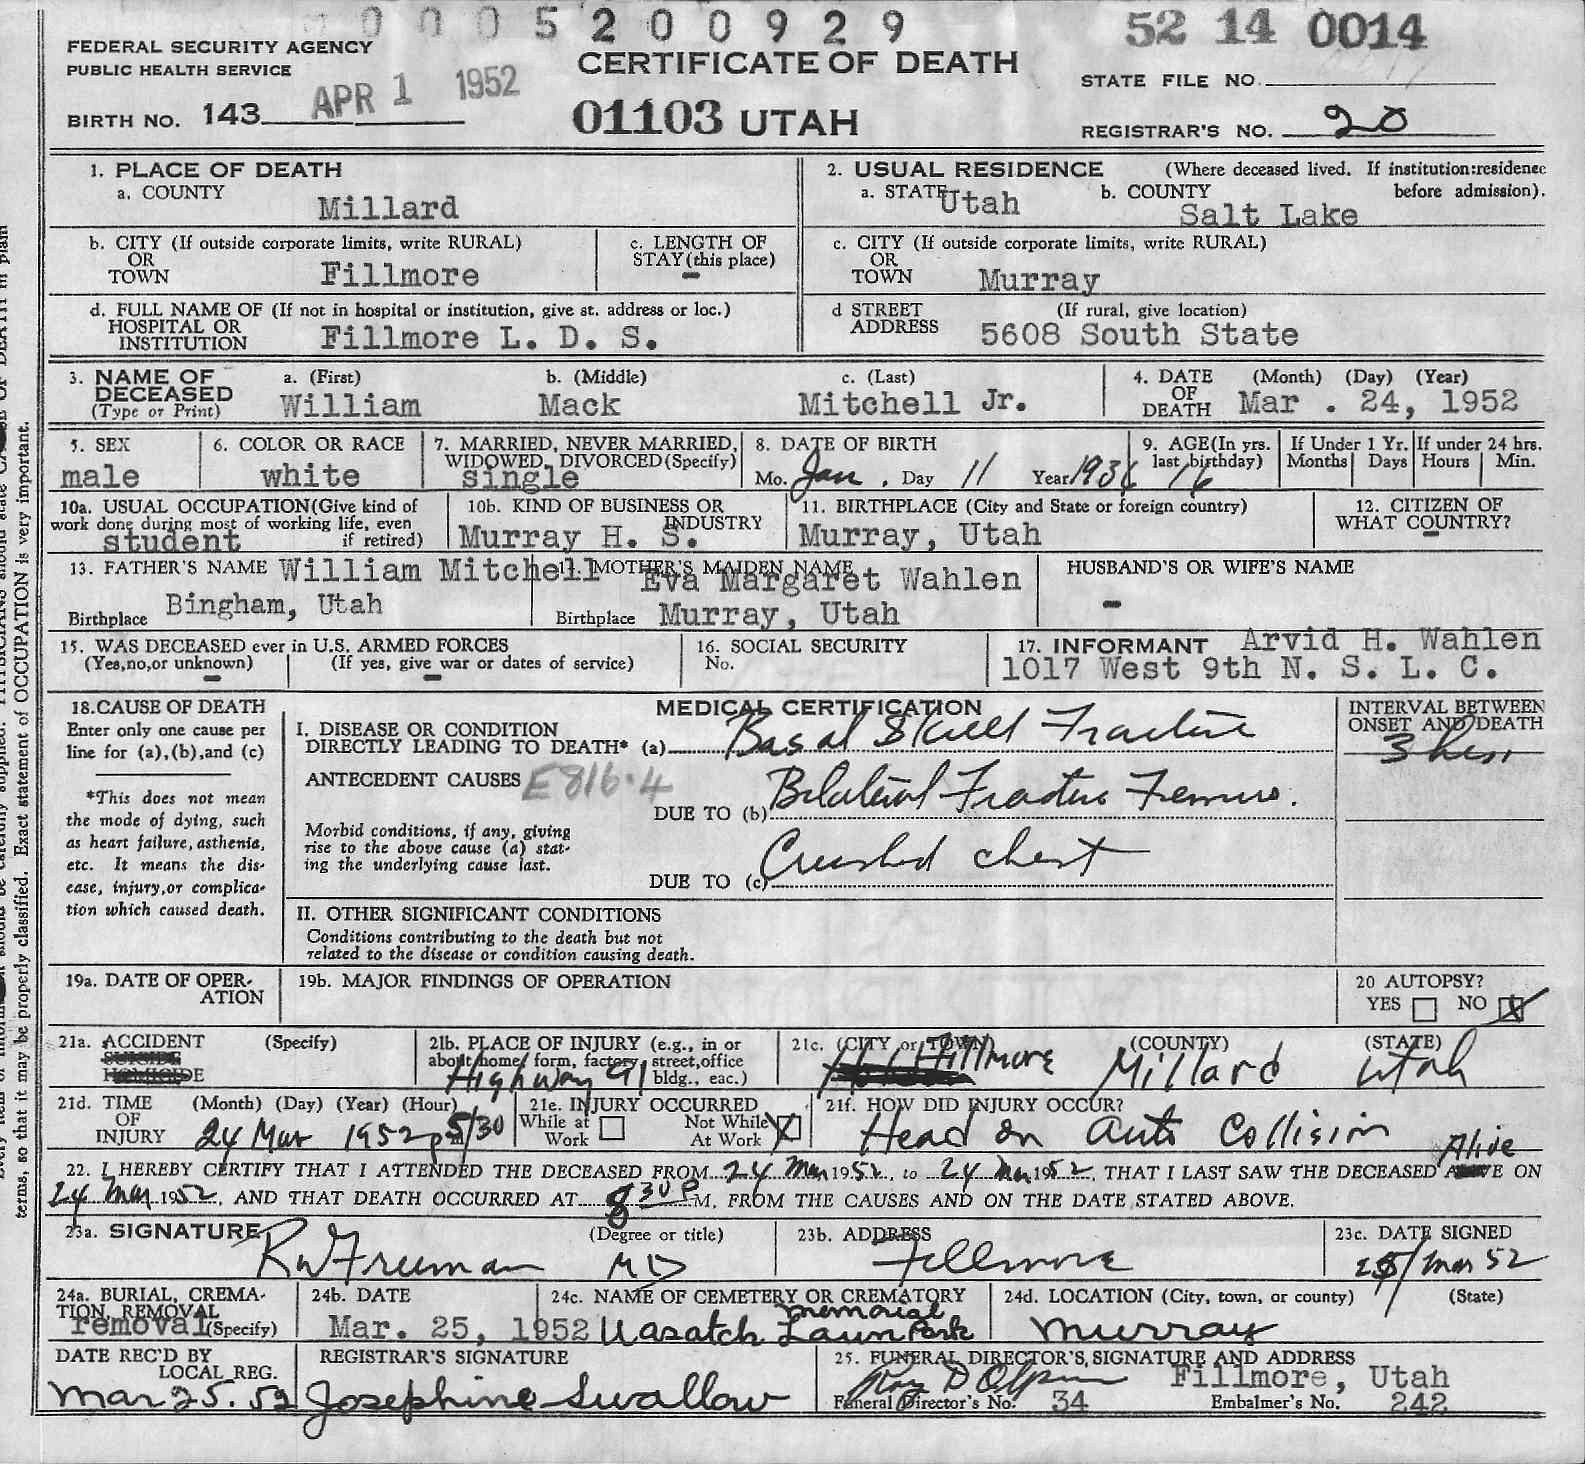 0005200929
52 14 0014
FEDERAL SECURITY AGENCY
PUBLIC HEALTH SERVICE
CERTIFICATE OF DEATH
STATE FILE NO.
BIRTH NO. 143
APR 1 1952
01103 UTAH
REGISTRAR'S NO. 20
1. PLACE OF DEATH
a. COUNTY
Millard
2. USUAL RESIDENCE (Where deceased lived. If institution:residence before admission).
a. STATE Utah b. COUNTY Salt Lake
b. CITY (If outside corporate limits, write RURAL)
OR
TOWN Fillmore
c. LENGTH OF
STAY (this place)
-
c. CITY (If outside corporate limits, write RURAL)
OR
TOWN Murray
d. FULL NAME OF (If not in hospital or institution, give st. address or loc.)
HOSPITAL OR
INSTITUTION Fillmore L. D. S.
d STREET (If rural, give location)
ADDRESS 5608 South State
3. NAME OF DECEASED (Type or Print)
a. (First) b. (Middle) c. (Last)
William Mack Mitchell Jr.
4. DATE OF DEATH (Month) (Day) (Year)
Mar . 24, 1952
5. SEX
male
6. COLOR OR RACE
white
7. MARRIED, NEVER MARRIED,
WIDOWED, DIVORCED (Specify)
single
8. DATE OF BIRTH
Mo. Jan. Day 11 Year 1936
9. AGE (In yrs.
last birthday)
16
If Under 1 Yr.
Months Days
If under 24 hrs.
Hours Min.
10a. USUAL OCCUPATION (Give kind of
work done during most of working life, even
if retired)
student
10b. KIND OF BUSINESS OR
INDUSTRY
Murray H. S.
11. BIRTHPLACE (City and State or foreign country)
Murray, Utah
12. CITIZEN OF
WHAT COUNTRY?
-
13. FATHER'S NAME William Mitchell
Birthplace Bingham, Utah
MOTHER'S MAIDEN NAME
Eva Margaret Wahlen
Birthplace Murray, Utah
HUSBAND'S OR WIFE'S NAME
-
15. WAS DECEASED ever in U.S. ARMED FORCES
(Yes,no,or unknown) (If yes, give war or dates of service)
- -
16. SOCIAL SECURITY
No.
17. INFORMANT Arvid H. Wahlen
1017 West 9th N. S. L. C.
18. CAUSE OF DEATH
Enter only one cause per
line for (a),(b),and (c)
*This does not mean
the mode of dying, such
as heart failure, asthenia,
etc. It means the dis-
ease, injury,or complica-
tion which caused death.
MEDICAL CERTIFICATION
I. DISEASE OR CONDITION
DIRECTLY LEADING TO DEATH* (a) Basal Skull Fracture
ANTECEDENT CAUSES E816.4
DUE TO (b) Bilateral Fracture Femurs.
Morbid conditions, if any, giving
rise to the above cause (a) stat-
ing the underlying cause last.
DUE TO (c) Crushed chest
INTERVAL BETWEEN
ONSET AND DEATH
3 hrs
II. OTHER SIGNIFICANT CONDITIONS
Conditions contributing to the death but not
related to the disease or condition causing death.
19a. DATE OF OPER-
ATION
19b. MAJOR FINDINGS OF OPERATION
20 AUTOPSY?
YES NO X
21a. ACCIDENT (Specify)
SUICIDE
HOMICIDE
21b. PLACE OF INJURY (e.g., in or
about home, form, factory, street,office
bldg., eac.)
Highway 91
21c. (CITY or TOWN) (COUNTY) (STATE)
Fillmore Millard Utah
21d. TIME OF INJURY (Month) (Day) (Year) (Hour)
24 Mar 1952 p 5/30
21e. INJURY OCCURRED
While at Work Not While At Work X
21f. HOW DID INJURY OCCUR?
Head on Auto Collision
22. I HEREBY CERTIFY THAT I ATTENDED THE DECEASED FROM 24 Mar 1952, to 24 Mar 1952, THAT I LAST SAW THE DECEASED Alive ON
24 Mar 1952, AND THAT DEATH OCCURRED AT 8 30 P M, FROM THE CAUSES AND ON THE DATE STATED ABOVE.
23a. SIGNATURE (Degree or title)
RW Freeman MD
23b. ADDRESS
Fillmore
23c. DATE SIGNED
25/Mar 52
24a. BURIAL, CREMA-
TION, REMOVAL
(Specify)
removal
24b. DATE
Mar. 25, 1952
24c. NAME OF CEMETERY OR CREMATORY
Wasatch Lawn Memorial Park
24d. LOCATION (City, town, or county) (State)
Murray
DATE REC'D BY
LOCAL REG.
Mar 25. 52
REGISTRAR'S SIGNATURE
Josephine Swallow
25. FUNERAL DIRECTOR'S SIGNATURE AND ADDRESS
Fillmore, Utah
Funeral Director's No. 34 Embalmer's No. 242
terms, so that it may be properly classified. Exact statement of OCCUPATION is very important.